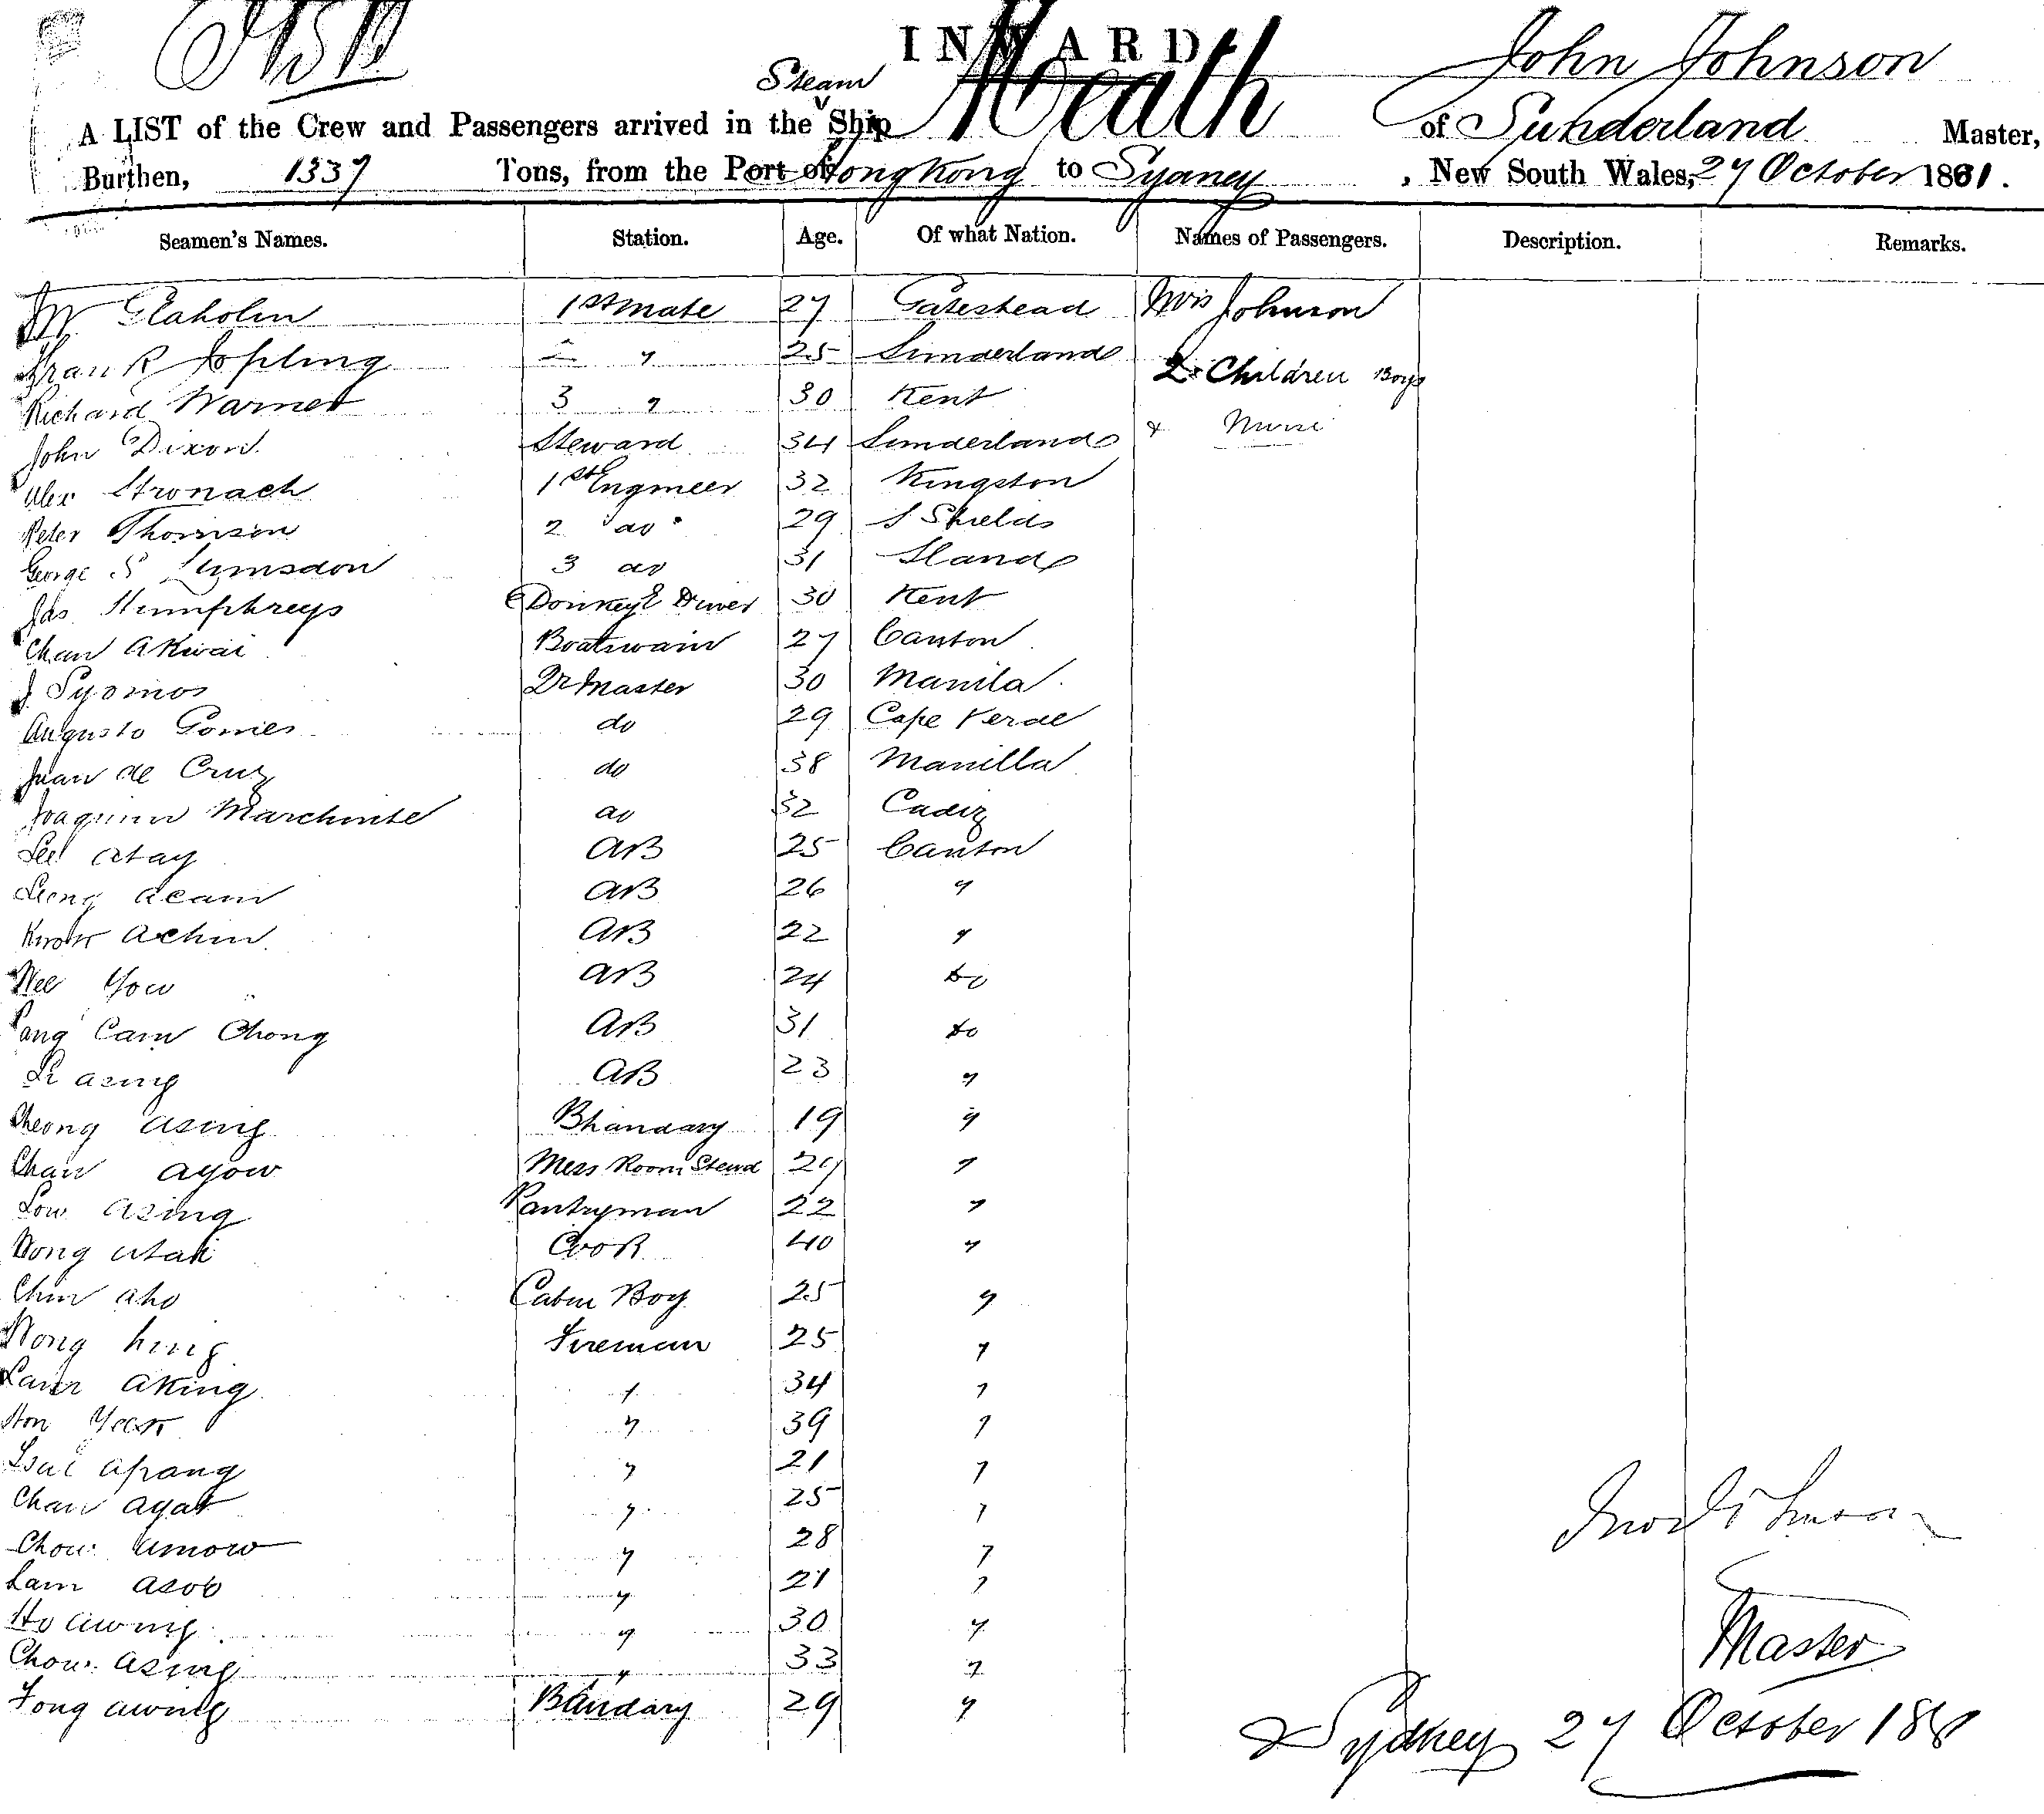 INWARD
A LIST of the Crew and Passengers arrived in the Steam Ship Meath John Johnson of Sunderland Master,
Burthen, 1337 Tons, from the Port of Hongkong to Sydney, New South Wales, 27 October 1881.
Seamen's Names. Station. Age. Of what Nation. Names of Passengers. Description. Remarks.
Wm Glaholm 1st mate 27 Gateshead Mrs Johnson
Frank Jopling 2 " 25 Sunderland 2 Children Boys
Richard Warner 3 " 30 Kent
John Dixon Steward 34 Sunderland & Nurse
Alex Stronach 1st Engineer 32 Kingston
Peter Thomson 2 do 29 S Shields
George S Lumsdon 3 do 31 Sland
Jas Humphreys Donkey E Driver 30 Kent
Chan Akwai Boatswain 27 Canton
J Syomos Qr Master 30 Manila
Augusto Gomes do 29 Cape Verde
Juan de Cruz do 38 Manilla
Joaquim do 32 Cadiz
Lee Atay AB 25 Canton
Leong Acam AB 26 "
Kwok Achin AB 22 "
Yow AB 24 do
Pang Cam Chong AB 31 do
Le Asing AB 23 "
Cheong Asing Bhandary 19 "
Chan Ayow Mess Room Stewd "
Low Asing Pantryman 22 "
Wong Atak Cook 40 "
Chin Aho Cabin Boy 25 "
Wong hing Fireman 25 "
Lam Aking " 34 "
Hon Yeek " 39 "
Tsui Apang " 21 "
Chan Ayat " 25 "
Chow Amow " 28 "
Lam Asob " 21 "
Ho Awing " 30 "
Chow Asing " 33 "
Fong Awing Bandary 29 "
Jno Johnson
Master
Sydney 27 October 1881